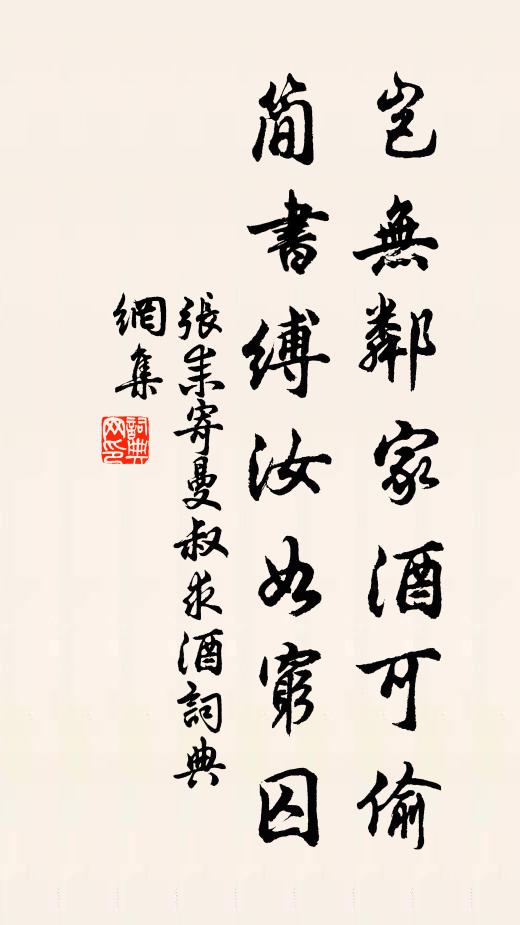 豈無鄰家酒可偷
簡書縛汝如窮囚
張耒寄曼叔求酒詞典
網集
詞典
网印